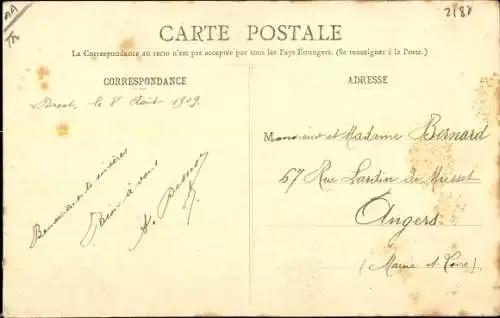 2187
CARTE POSTALE
La Correspondance au recto n'est pas acceptée par tous les Pays Etrangers. (Se renseigner à la Poste.)
CORRESPONDANCE
Brest, le 8 Août 1909.
à vous
ADRESSE
Monsieur et Madame Bernard
67 Rue de Musset
Angers
(Maine et Loire)